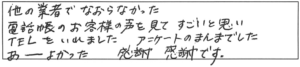 他の業者でなおらなかった
電話帳のお客様の声を見て すごいと思い
TELをいれました アンケートのまんまでした
あーよかった 感謝 感謝です。